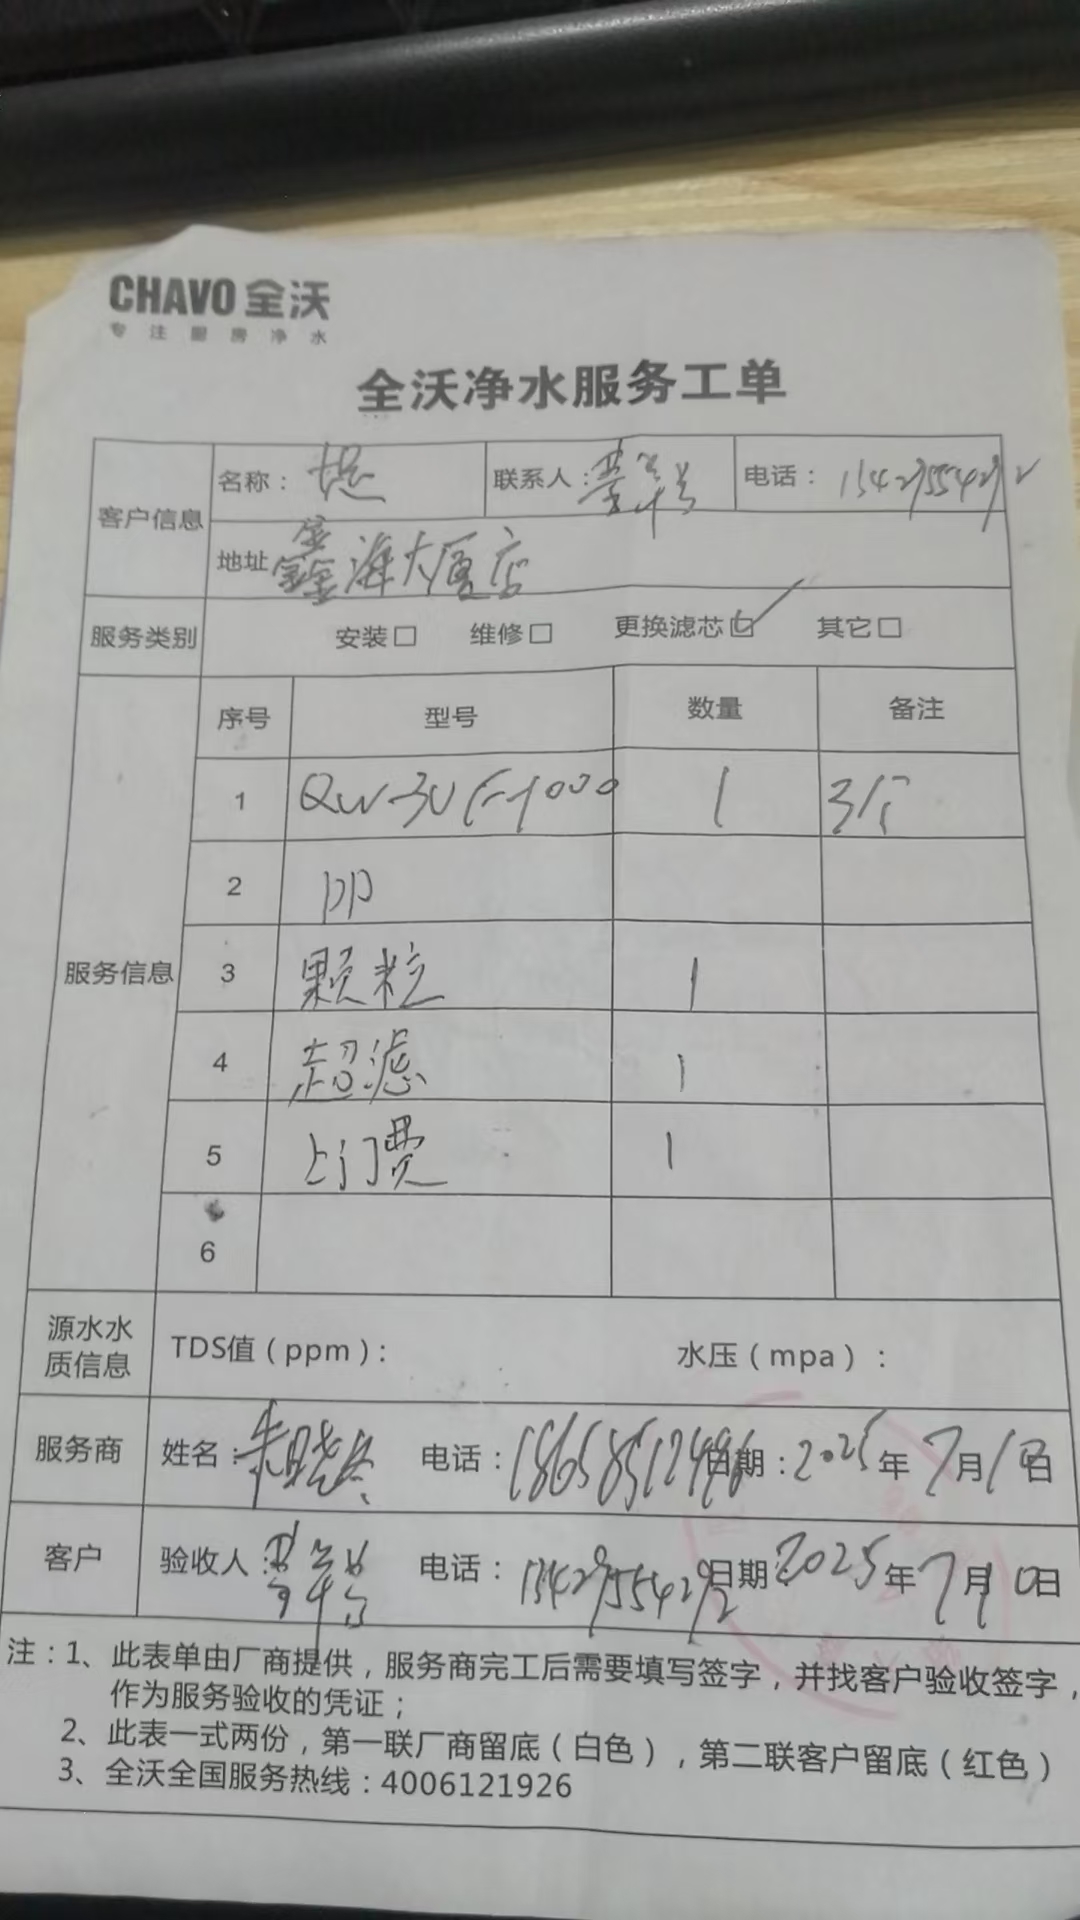 CHAVO 全沃
专注厨房净水
全沃净水服务工单
客户信息
名称：
联系人：
电话：13429554292
地址 鑫海大厦店
服务类别 安装□ 维修□ 更换滤芯☑ 其它□
服务信息
序号 型号 数量 备注
1 QW-3UF-1000 1
2 PP
3 颗粒 1
4 超滤 1
5 上门费 1
6
源水水质信息 TDS值（ppm）： 水压（mpa）：
服务商 姓名： 电话： 日期：2025年7月10日
客户 验收人： 电话：13429554292 日期 2025年7月10日
注：1、此表单由厂商提供，服务商完工后需要填写签字，并找客户验收签字，
作为服务验收的凭证；
2、此表一式两份，第一联厂商留底（白色），第二联客户留底（红色）
3、全沃全国服务热线：4006121926